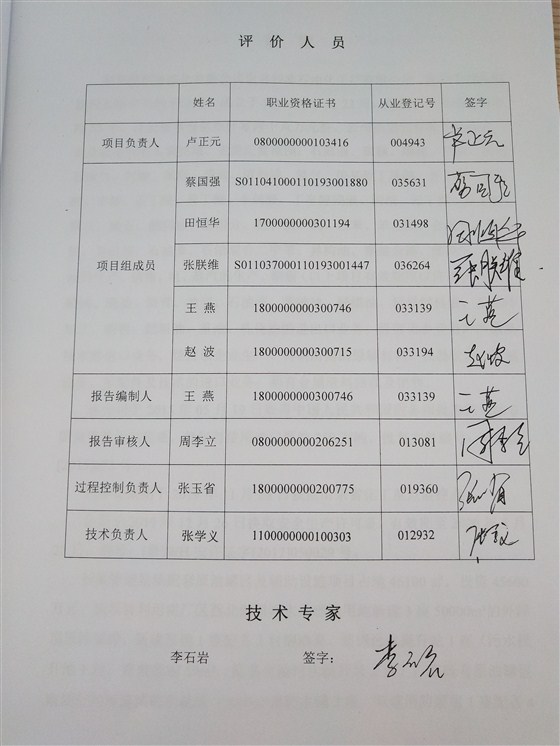 评 价 人 员
姓名 职业资格证书 从业登记号 签字
项目负责人 卢正元 0800000000103416 004943 卢正元
蔡国强 S011041000110193001880 035631 蔡国强
田恒华 1700000000301194 031498 田恒华
项目组成员 张朕维 S011037000110193001447 036264 张朕维
王 燕 1800000000300746 033139 王燕
赵 波 1800000000300715 033194 赵波
报告编制人 王 燕 1800000000300746 033139 王燕
报告审核人 周李立 0800000000206251 013081 周李立
过程控制负责人 张玉省 1800000000200775 019360 张玉省
技术负责人 张学义 1100000000100303 012932 张学义
技 术 专 家
李石岩 签字： 李石岩